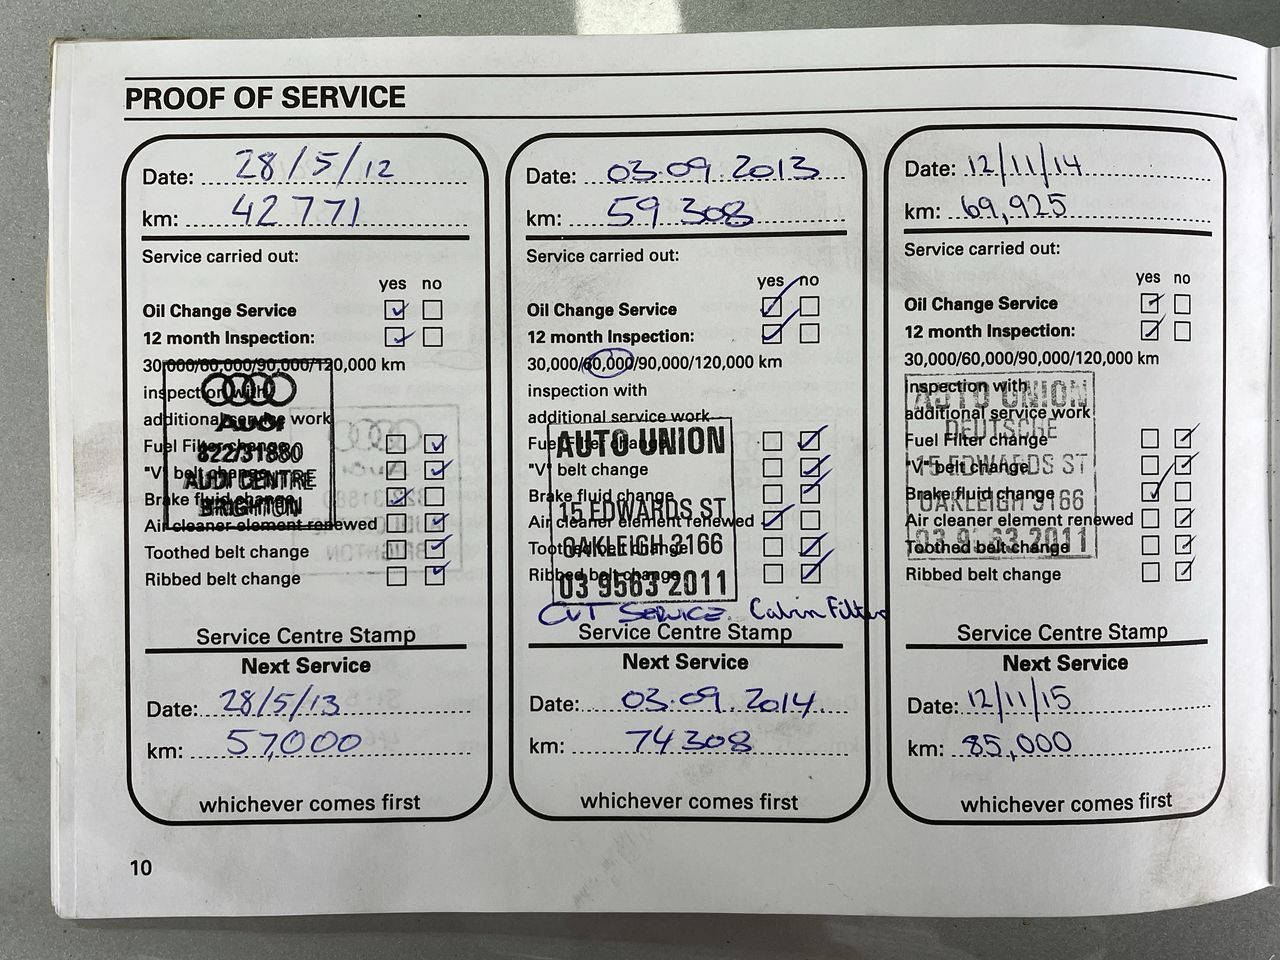 PROOF OF SERVICE
Date: 28/5/12
km: 42771
Service carried out:
yes no
Oil Change Service
12 month Inspection:
30,000/60,000/90,000/120,000 km
inspection with
additional service work
Fuel Filter change
"V" belt change
Brake fluid change
Air cleaner element renewed
Toothed belt change
Ribbed belt change
Audi
822/31880
AUDI CENTRE
BRIGHTON
Service Centre Stamp
Next Service
Date: 28/5/13
km: 57,000
whichever comes first
Date: 03.09.2013
km: 59 308
Service carried out:
yes no
Oil Change Service
12 month Inspection:
30,000/60,000/90,000/120,000 km
inspection with
additional service work
Fuel Filter change
"V" belt change
Brake fluid change
Air cleaner element renewed
Toothed belt change
Ribbed belt change
AUTO UNION
15 EDWARDS ST
OAKLEIGH 3166
03 9563 2011
CVT SERVICE. Cabin Filter
Service Centre Stamp
Next Service
Date: 03.09.2014
km: 74308
whichever comes first
Date: 12/11/14
km: 69,925
Service carried out:
yes no
Oil Change Service
12 month Inspection:
30,000/60,000/90,000/120,000 km
inspection with
additional service work
Fuel Filter change
"V" belt change
Brake fluid change
Air cleaner element renewed
Toothed belt change
Ribbed belt change
AUTO UNION
DEUTSCHE
15 EDWARDS ST
OAKLEIGH 3166
03 9563 2011
Service Centre Stamp
Next Service
Date: 12/11/15
km: 85,000
whichever comes first
10